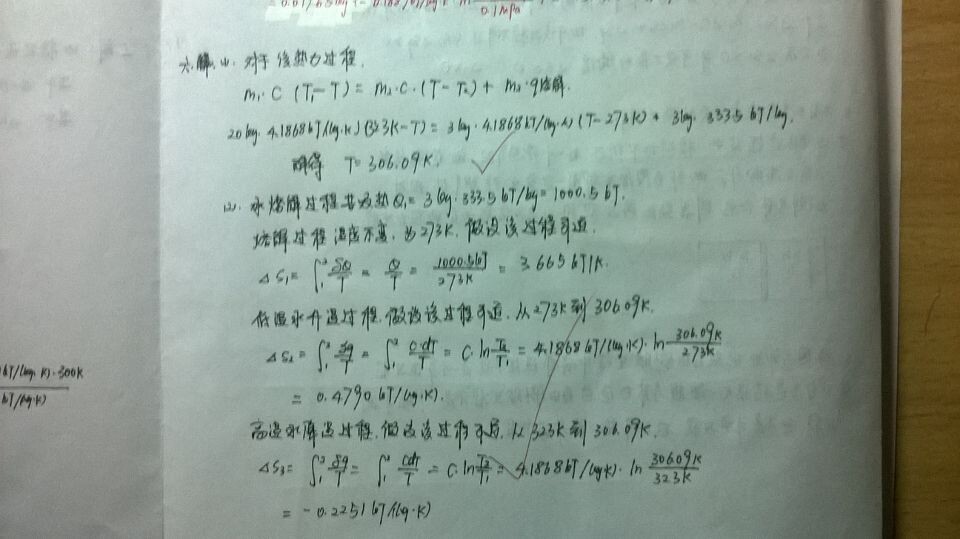 = 0.01765kg
0.1MPa
六.解.(1). 对于该热力过程.
m₁·C (T₁-T) = m₂·C·(T-T₂) + m₂·q溶解.
20kg·4.1868kJ/(kg·K)(323K-T) = 3kg·4.1868kJ/(kg·K)(T-273K) + 3kg·333.5kJ/kg.
解得 T=306.09K.
(2). 冰熔解过程共吸热Q₁= 3kg·333.5kJ/kg=1000.5kJ.
熔解过程温度不变, 为273K, 假设该过程可逆.
ΔS₁= ∫₁² δQ/T = Q/T = 1000.5kJ/273K = 3.665kJ/K.
低温水升温过程, 假设该过程可逆, 从273K到306.09K.
ΔS₂= ∫₁² δq/T = ∫₁² CdT/T = C·ln T₂/T₁ = 4.1868kJ/(kg·K)·ln 306.09K/273K
= 0.4790kJ/(kg·K).
高温水降温过程, 假设该过程可逆, 从323K到306.09K.
ΔS₃= ∫₁² δq/T = ∫₁² CdT/T = C·ln T₂/T₁ = 4.1868kJ/(kg·K)·ln 306.09K/323K
= -0.2251kJ/(kg·K)
kJ/(kg·K)·300K
kJ/(kg·K)